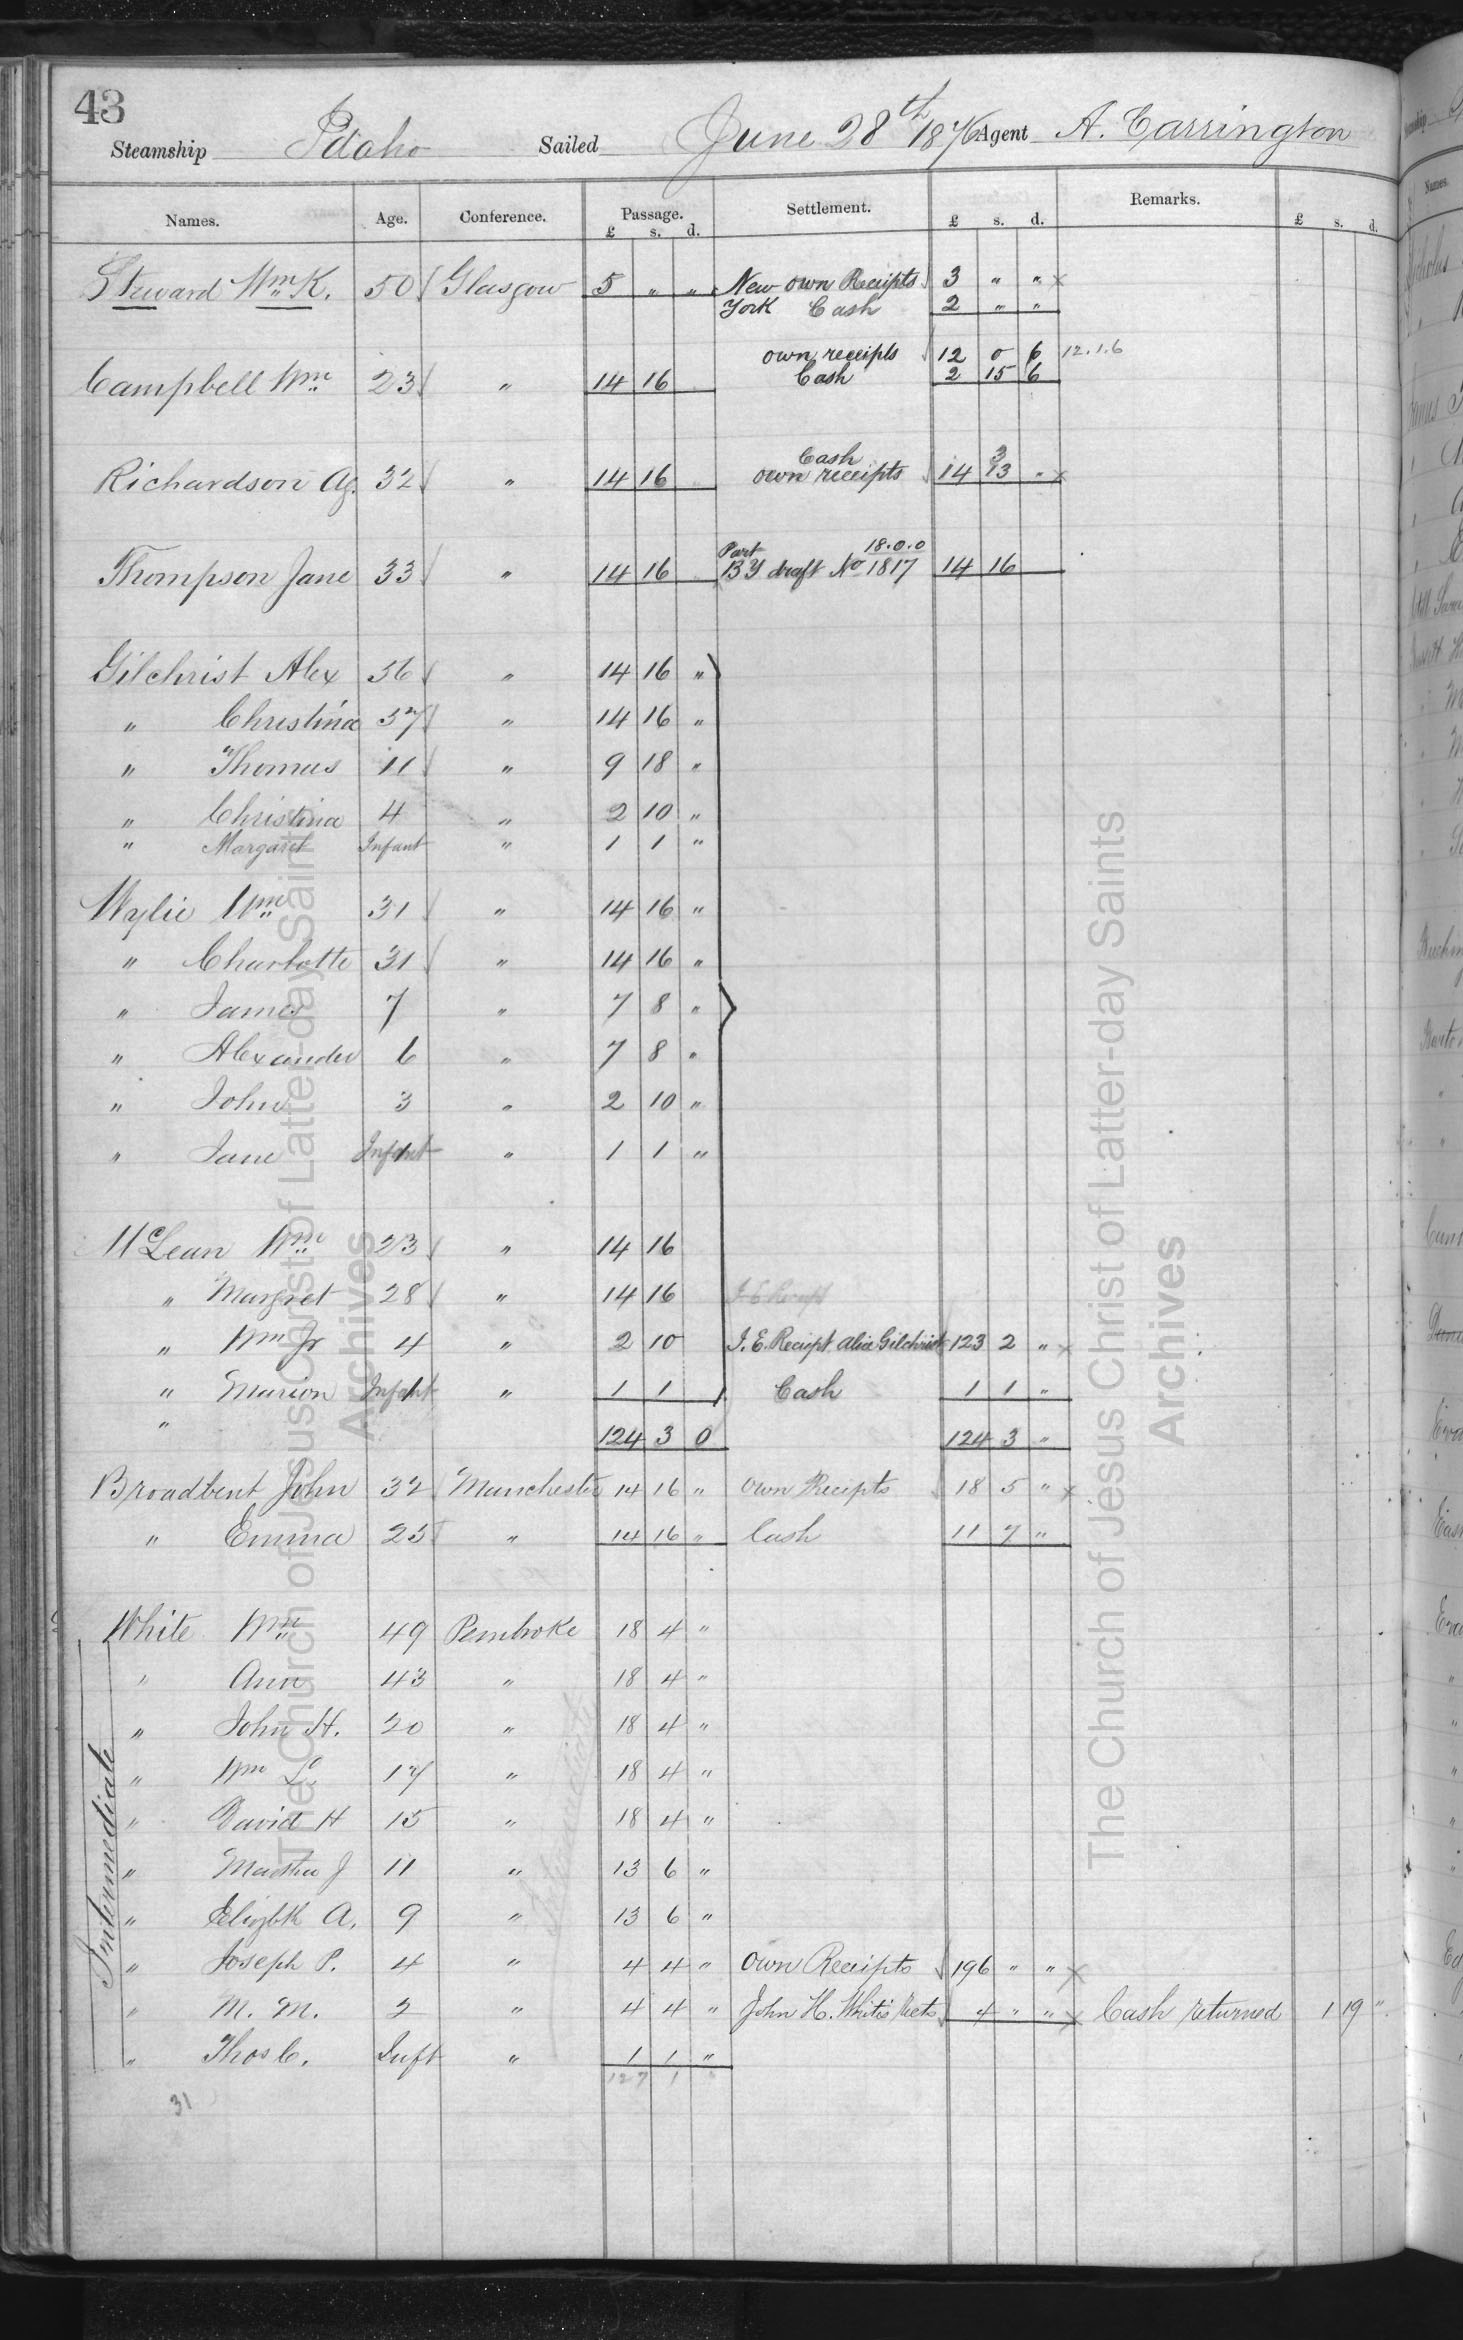 43
Steamship Idaho Sailed June 28th 1876 Agent A. Carrington
Names. Age. Conference. Passage. £ s. d. Settlement. £ s. d. Remarks. £ s. d.
Steward Wm K. 50 Glasgow 5 " " New own Receipts 3 " " x
York Cash 2 " "
own receipts 12 0 6 12.1.6
Campbell Wm 23 " 14 16 Cash 2 15 6
Cash 3
Richardson Ag. 32 " 14 16 own receipts 14 13 " x
Part 18.0.0
Thompson Jane 33 " 14 16 BY draft No 1817 14 16
Gilchrist Alex 36 " 14 16 "
" Christina 37 " 14 16 "
" Thomas 11 " 9 18 "
" Christina 4 " 2 10 "
" Margaret Infant " 1 1 "
Wylie Wm 31 " 14 16 "
" Charlotte 31 " 14 16 "
" James 7 " 7 8 "
" Alexander 6 " 7 8 "
" John 3 " 2 10 "
" Jane Infant " 1 1 "
McLean Wm 23 " 14 16
" Margret 28 " 14 16 I.E. Receipt
" Wm Jr 4 " 2 10 I.E. Receipt Alice Gilchrist 123 2 " x
" Marion Infant " 1 1 Cash 1 1 "
" 124 3 0 124 3 "
Broadbent John 32 Manchester 14 16 " Own Receipts 18 5 " x
" Emma 25 " 14 16 " Cash 11 7 "
White Wm 49 Pembroke 18 4 "
" Ann 43 " 18 4 "
" John H. 20 " 18 4 "
" Wm L. 17 " 18 4 "
" David H 15 " 18 4 "
" Martha J 11 " 13 6 "
" Elizbth A. 9 " 13 6 "
" Joseph P. 4 " 4 4 " Own Receipts 196 " " x
" M. M. 2 " 4 4 " John H. White's Rects 4 " " x Cash returned 1 19 "
" Thos C. Inft " 1 1 "
127 1 "
31
Intermediate
Intermediate
The Church of Jesus Christ of Latter-day Saints
Archives
The Church of Jesus Christ of Latter-day Saints
Archives